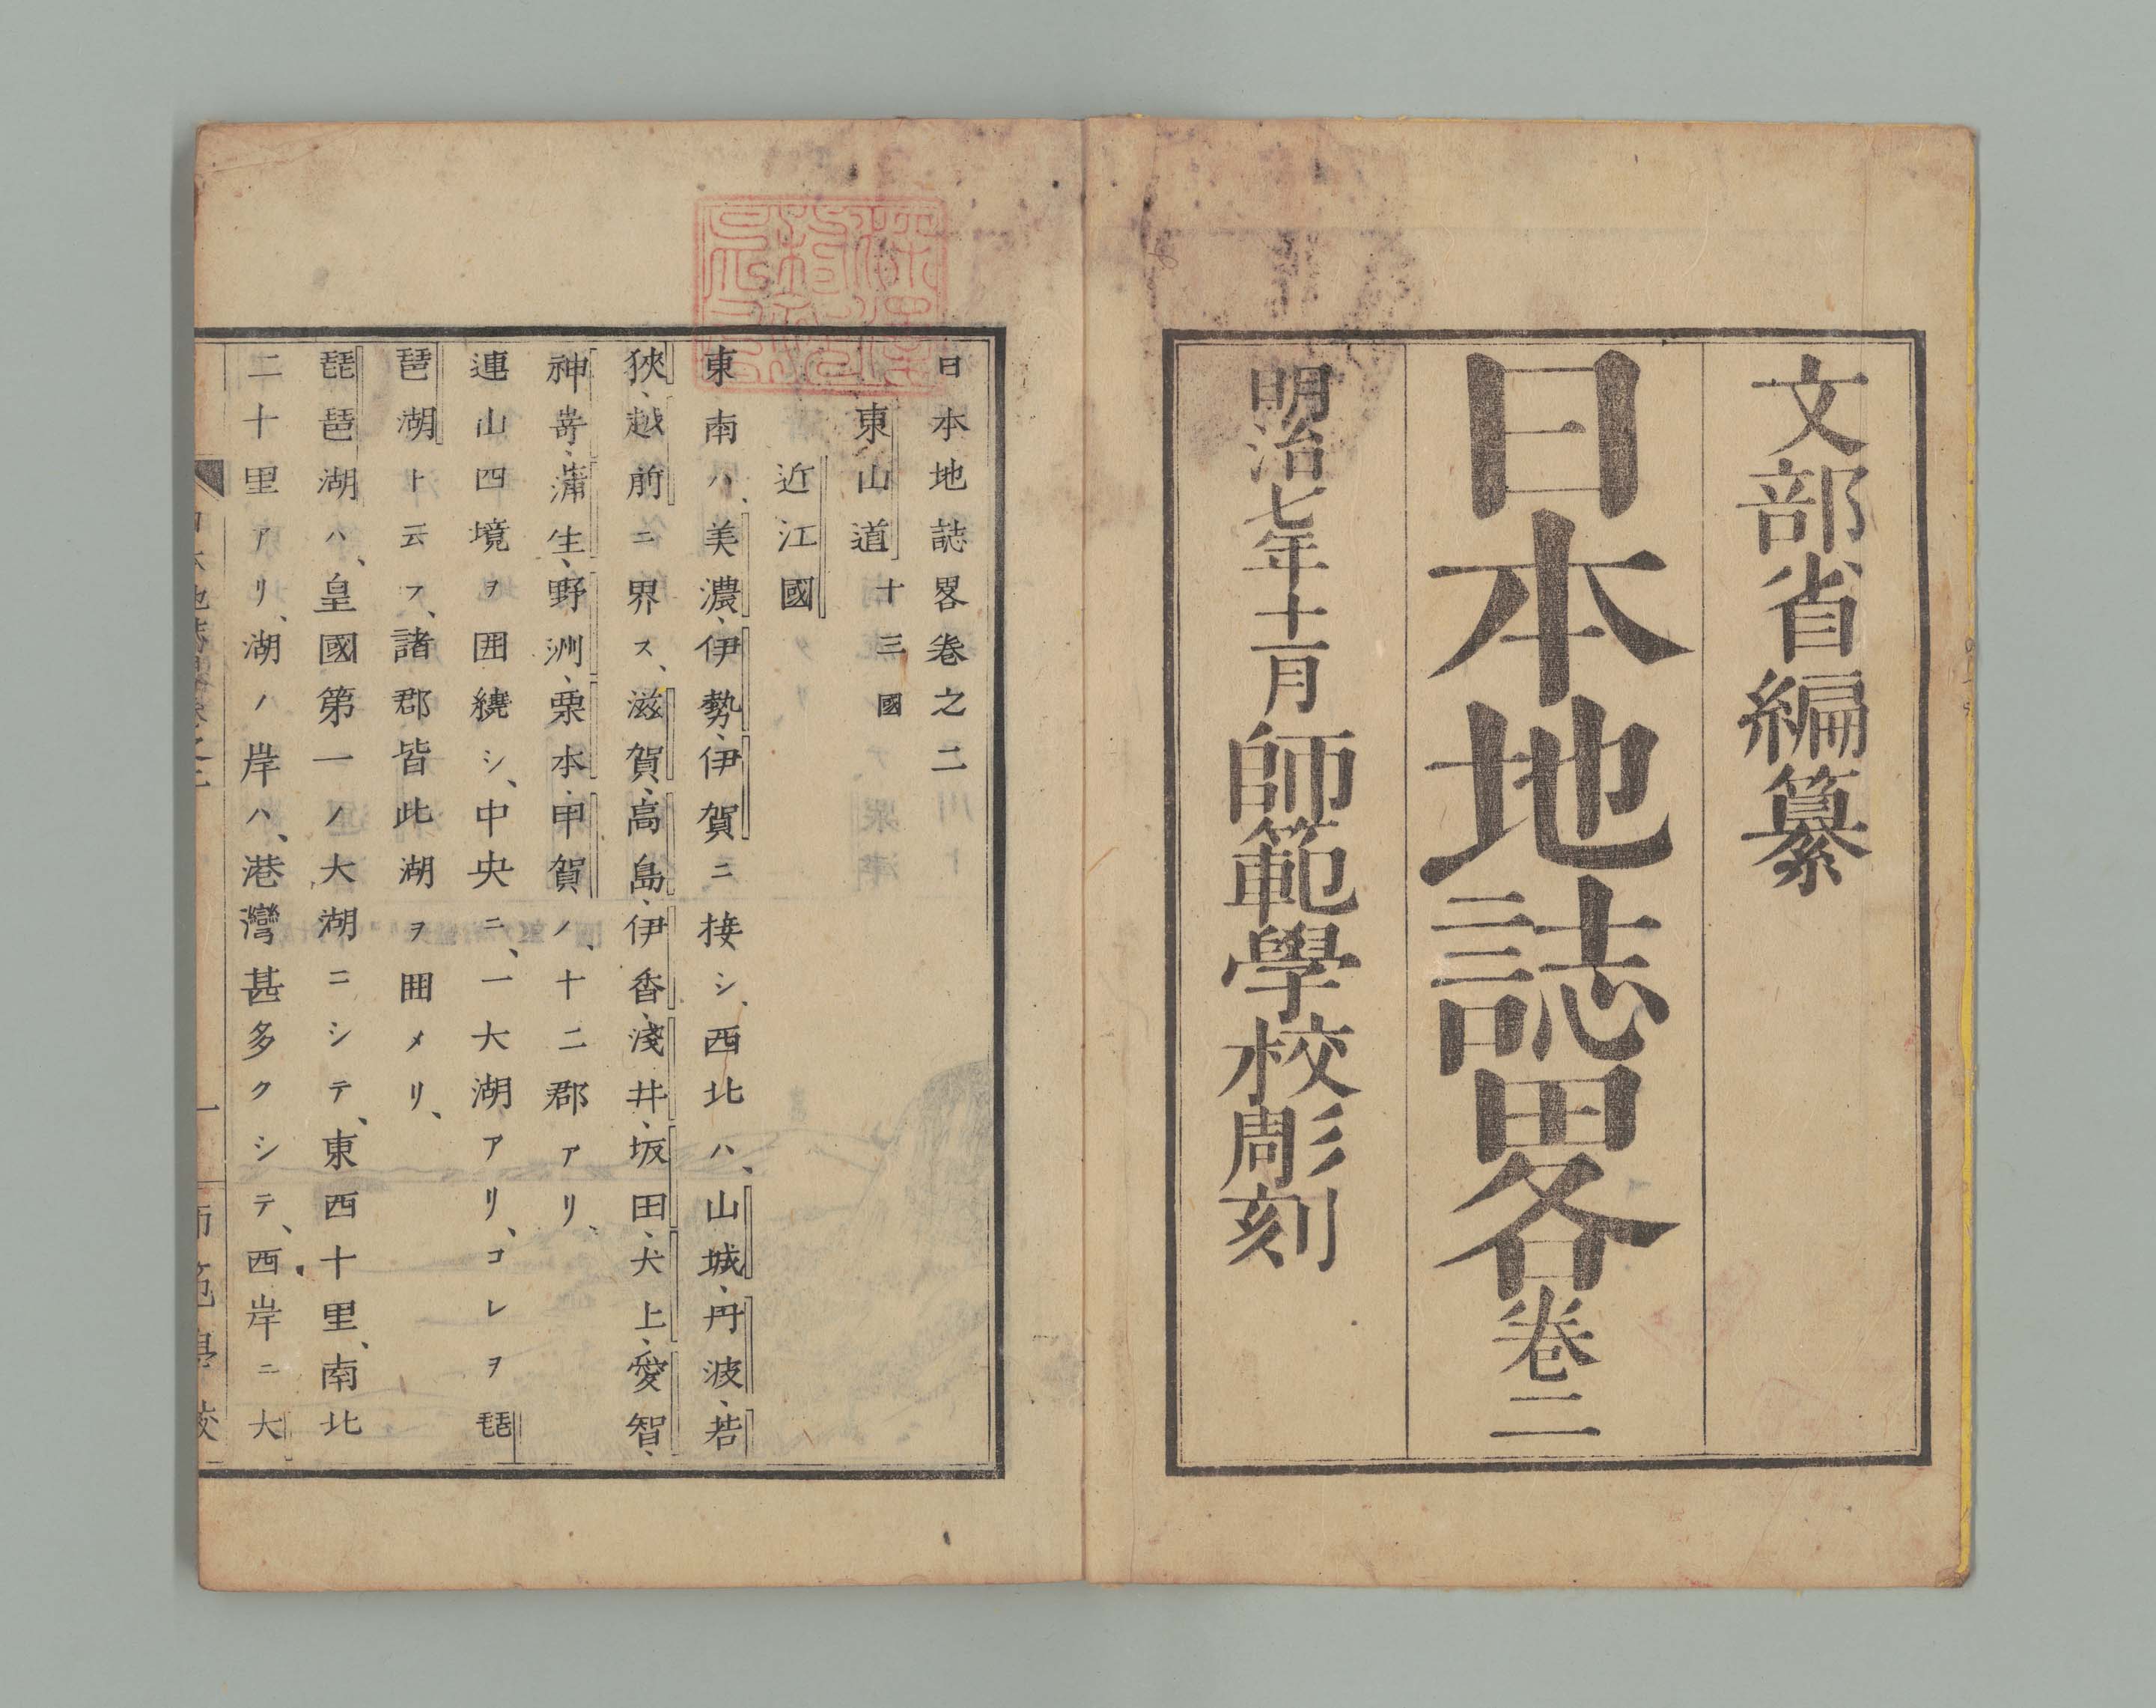 文部省編纂
日本地誌畧卷二
明治七年十二月師範學校彫刻
日本地誌畧卷之二
東山道十三國
近江國
東南ハ、美濃、伊勢、伊賀ニ接シ、西北ハ、山城、丹波、若
狹、越前ニ界ス、滋賀、高島、伊香、淺井、坂田、犬上、愛智、
神嵜、蒲生、野洲、栗本、甲賀ノ、十二郡アリ、
連山四境ヲ囲繞シ、中央ニ、一大湖アリ、コレヲ琵
琶湖ト云フ、諸郡皆此湖ヲ囲メリ、
琵琶湖ハ、皇國第一ノ大湖ニシテ、東西十里、南北
二十里アリ、湖ノ岸ハ、港灣甚多クシテ、西岸ニ大